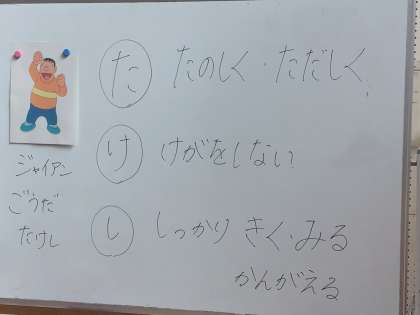 た たのしく・ただしく
け けがをしない
し しっかり きく・みる
かんがえる
ジャイアン
ごうだ
たけし